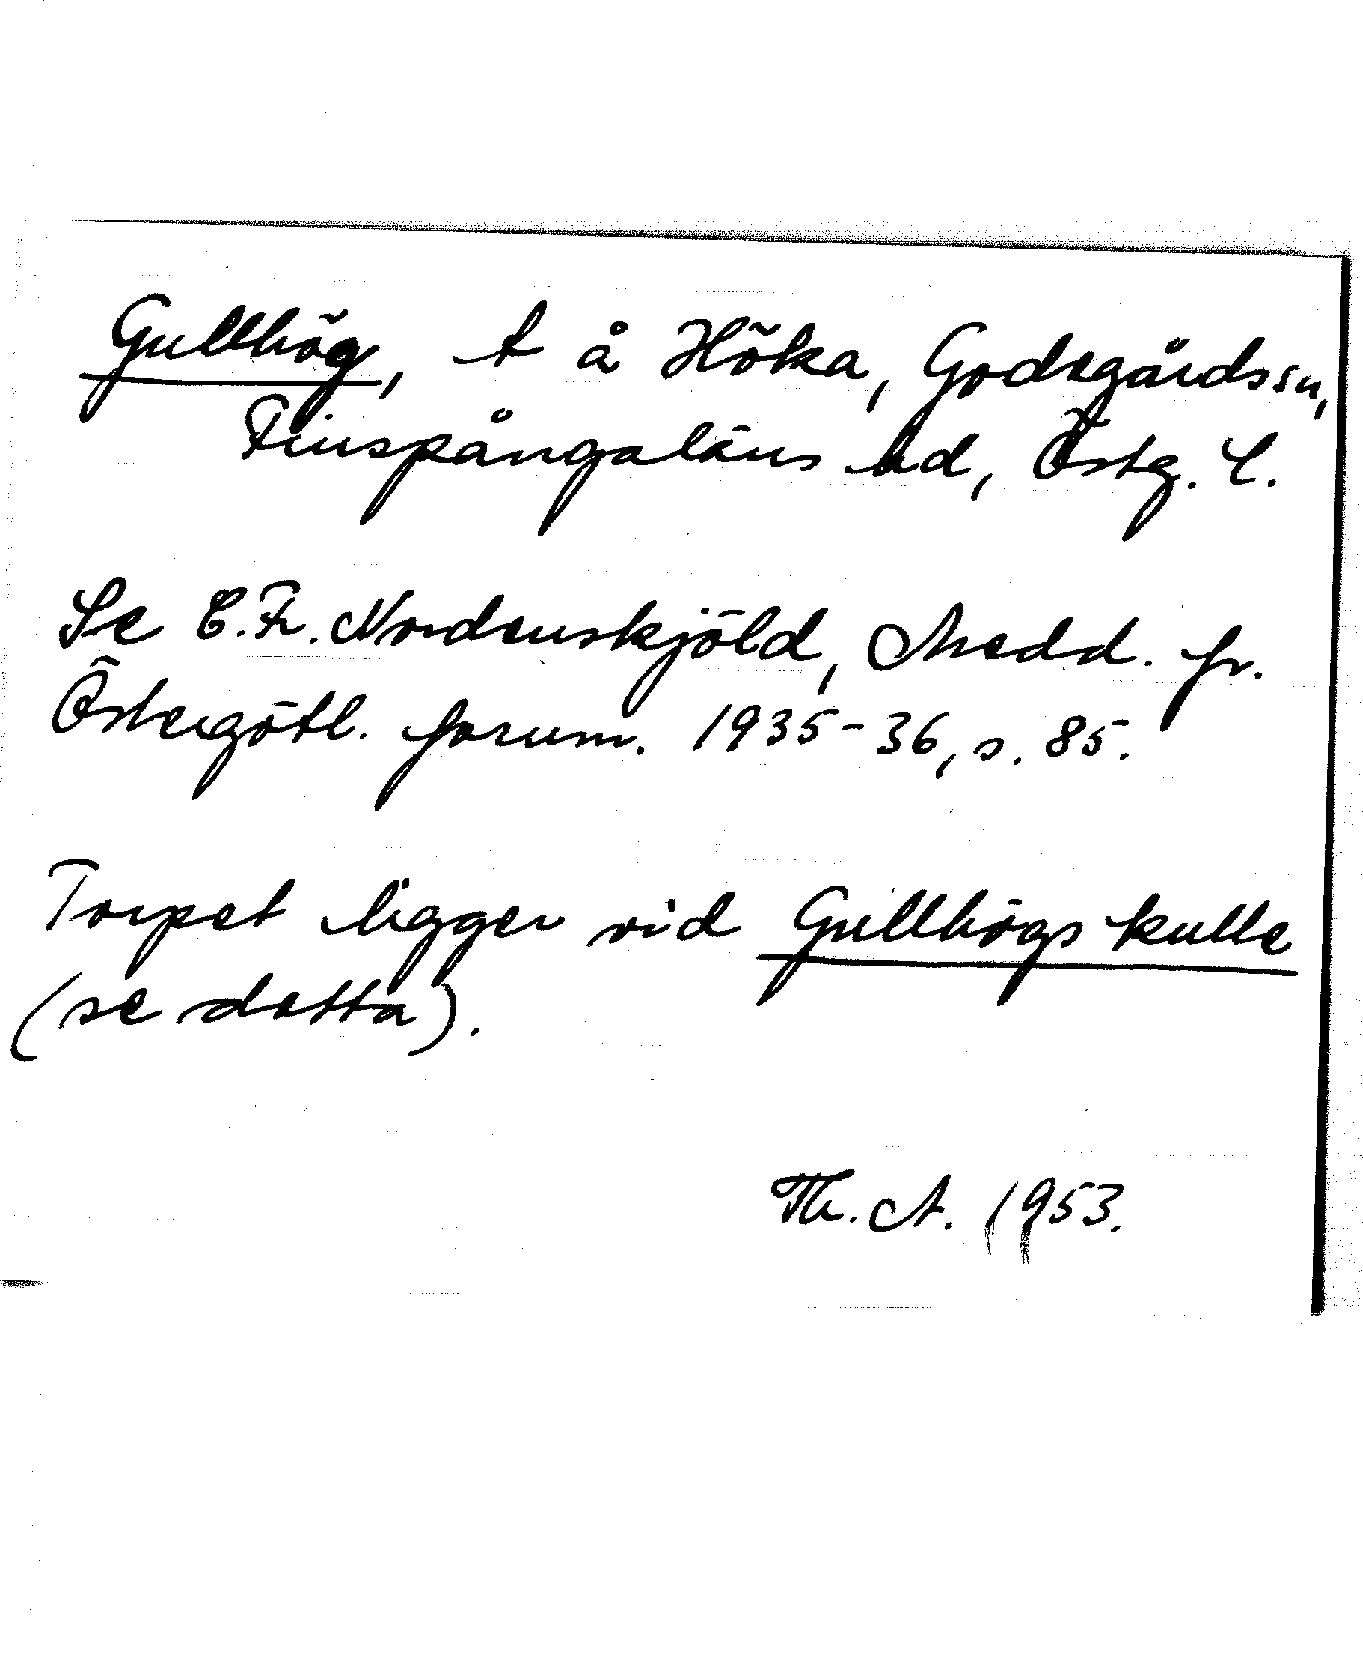 Gullhög, t å Höka, Godegårds sn,
Finspångaläns hd, Östg. l.
Se C. Fr. Nordenskjöld, Medd. fr.
Östergötl. fornm. 1935-36, s. 85.
Torpet ligger vid Gullhögs kulle
(se detta).
Th. A. 1953.